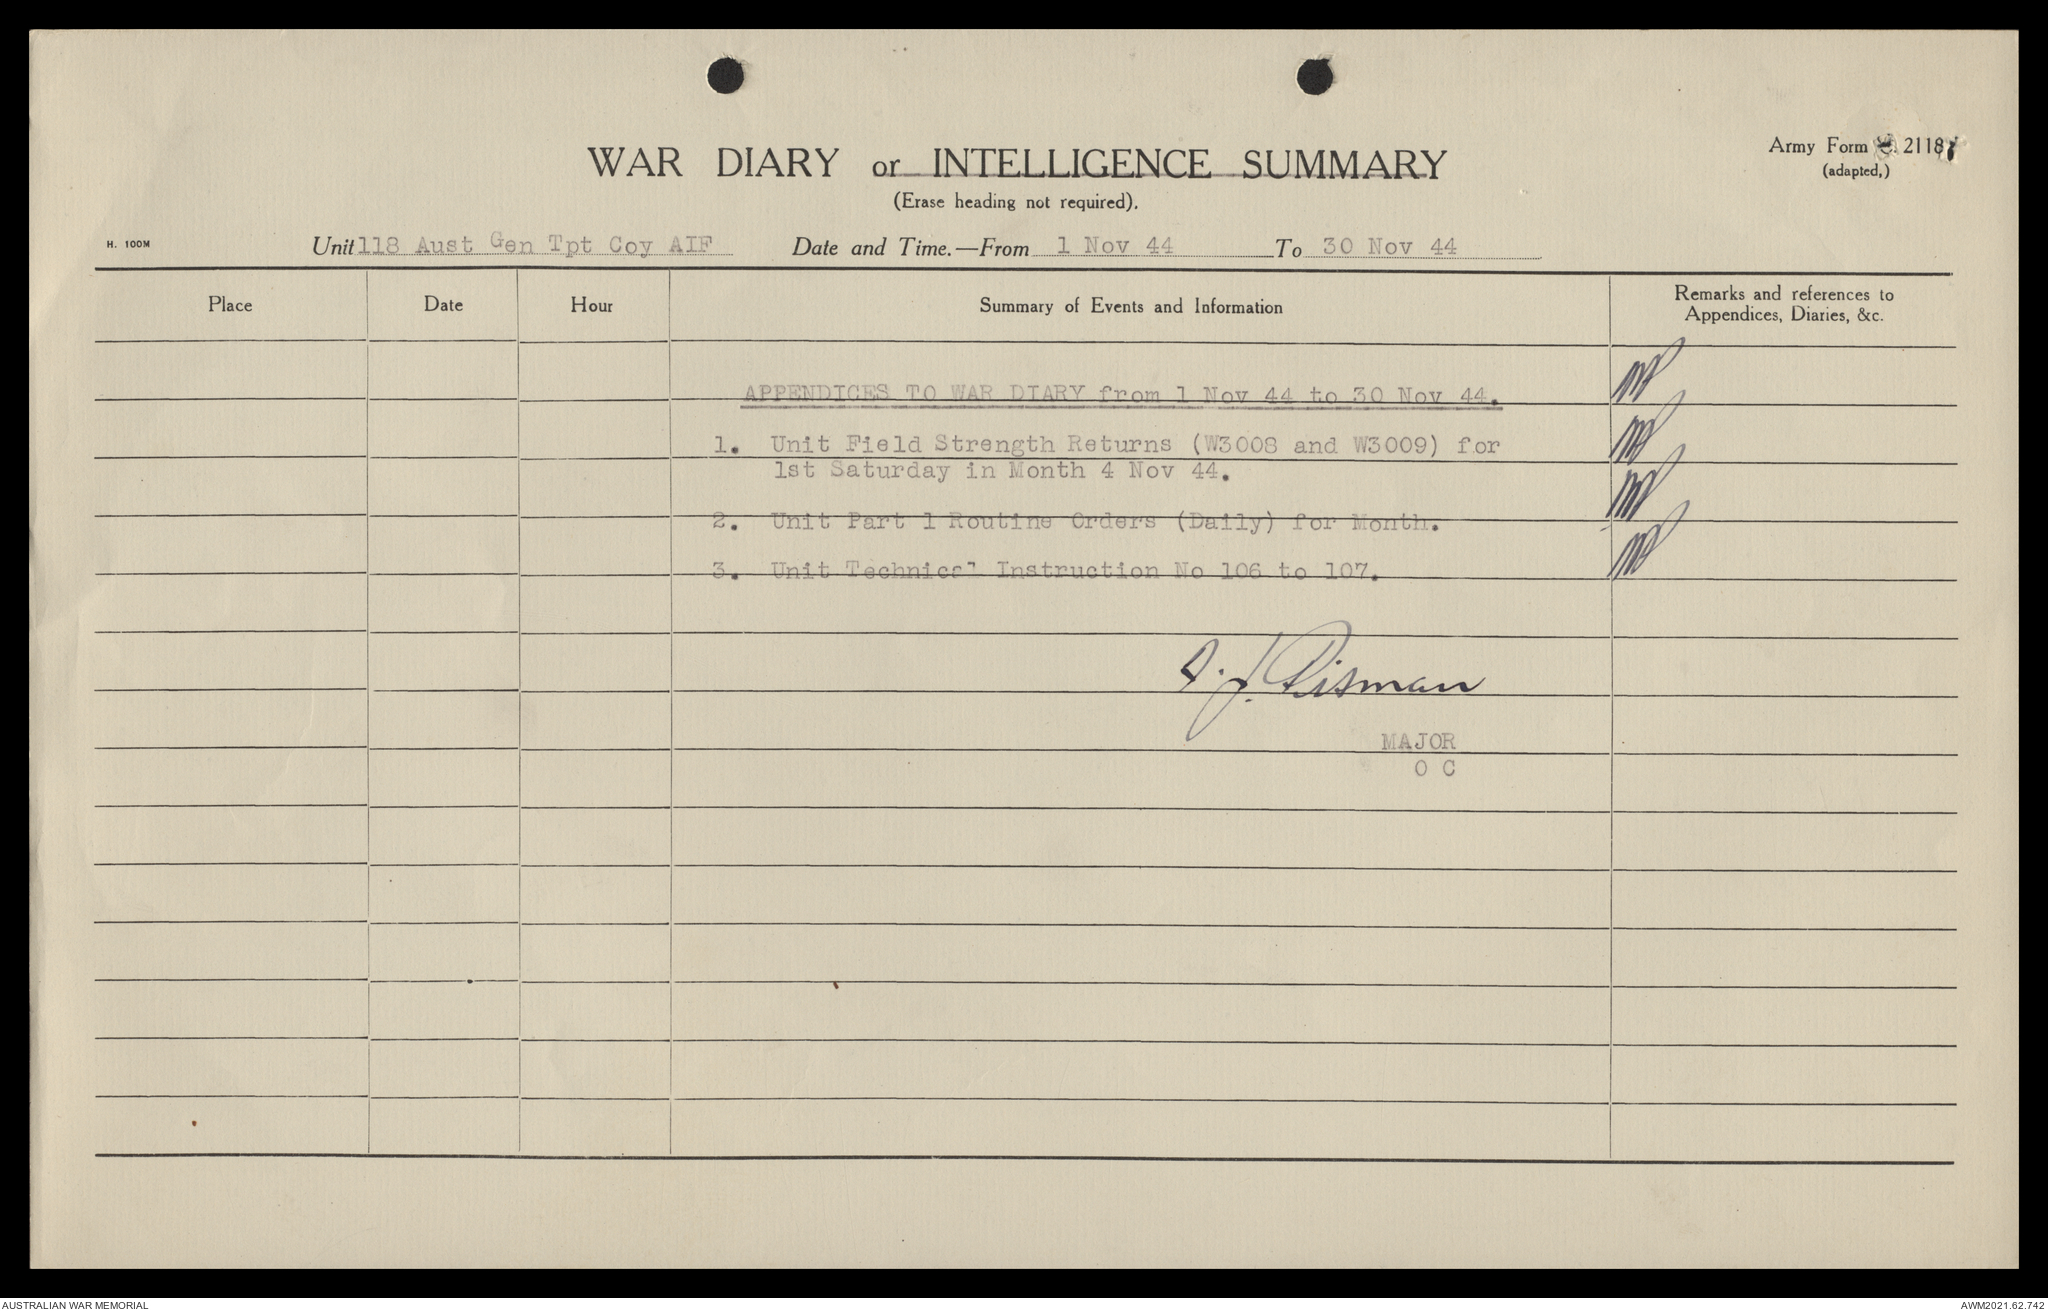 WAR DIARY or INTELLIGENCE SUMMARY
(Erase heading not required).
Army Form 2118
(adapted,)
H. 100M
Unit 118 Aust Gen Tpt Coy AIF Date and Time.—From 1 Nov 44 To 30 Nov 44
Place Date Hour Summary of Events and Information Remarks and references to
Appendices, Diaries, &c.
APPENDICES TO WAR DIARY from 1 Nov 44 to 30 Nov 44.
1. Unit Field Strength Returns (W3008 and W3009) for
1st Saturday in Month 4 Nov 44.
2. Unit Part 1 Routine Orders (Daily) for Month.
3. Unit Technical Instruction No 106 to 107.
MAJOR
O C
AUSTRALIAN WAR MEMORIAL
AWM2021.62.742